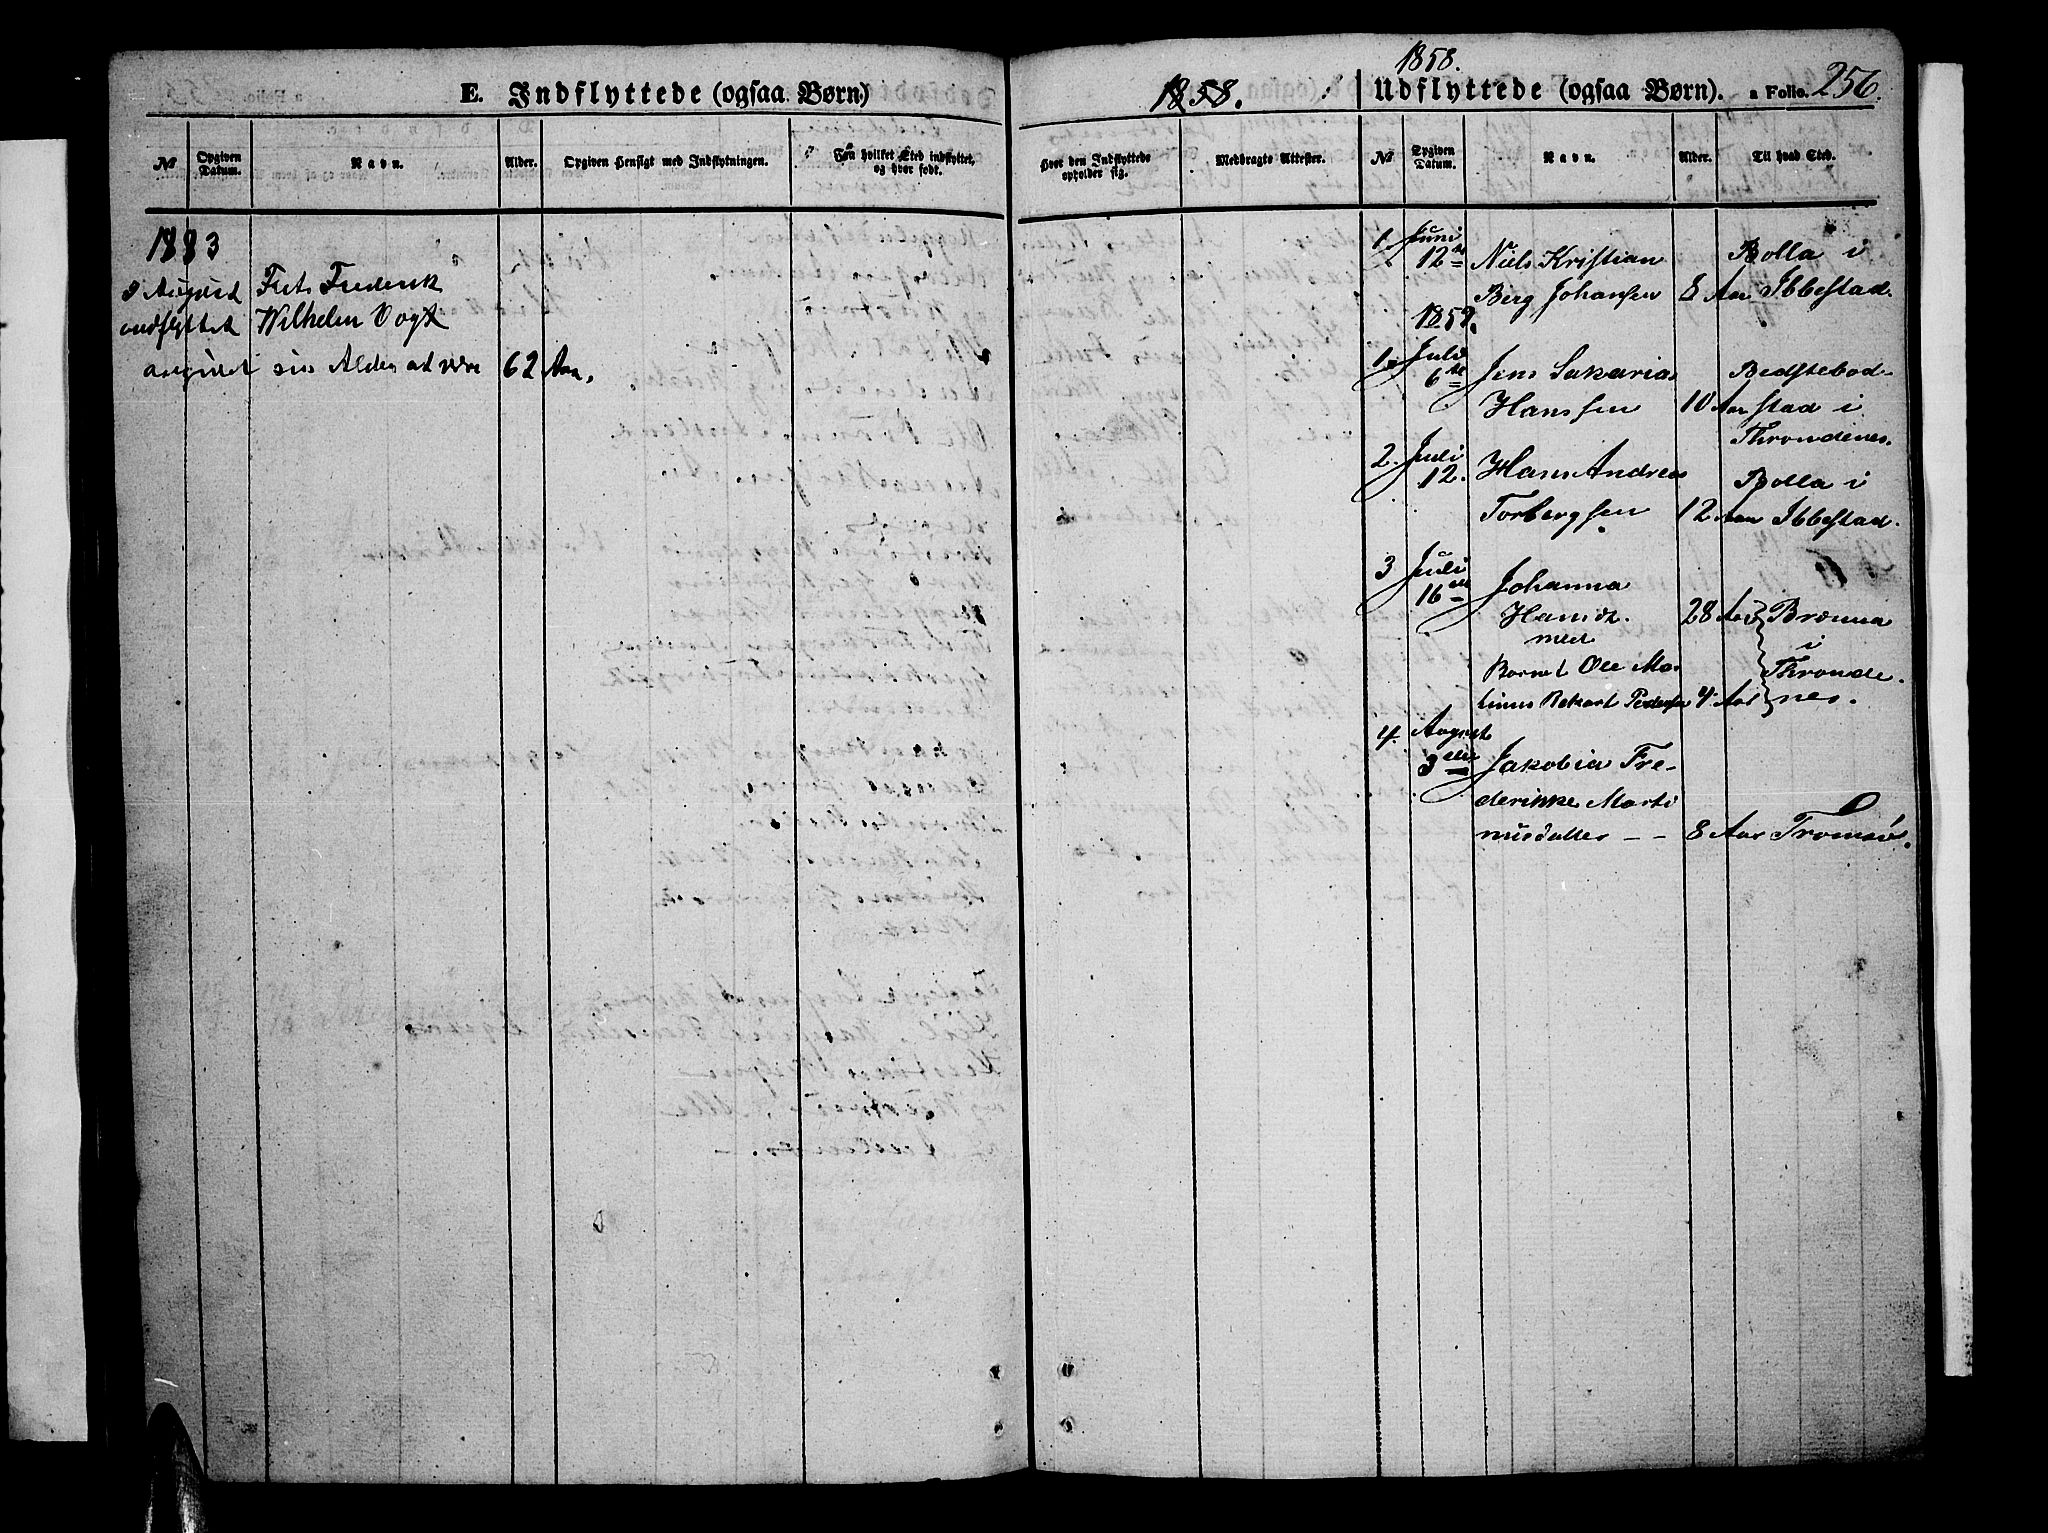 E. Indflyttede (ogsaa Børn)
1858.
No
Opgiven Datum.
Navn.
Alder.
Opgiven Hensigt med Indflytningen.
Fra hvilket Sted indflyttet, og hvor født.
Hvor den Indflyttede opholder sig.
Medbragte Attester.
1883
9 August Frits Frederik
indflyttet Wilhelm Vogt
angivet sin Alder at være 62 Aar.
1858.
Udflyttede (ogsaa Børn). a Folio. 256.
No
Opgiven Datum.
Navn.
Alder.
Til hvad Sted.
1. Juni
12te Niels Kristian Rolla i
Berg Johansen 8 Aar Ibbestad.
1859.
1. Juli
6te Jens Sakarias Bedstebod-
Hanssen 10 Aar stad i
Throndenes.
2. Juli
12. Hans Andreas Rolla i
Torbergsen 12 Aar Ibbestad.
3 Juli
16de Johanna
Hansdt. 28 Aar Brønna
med i
Barnet Ole Mar Thronde-
tinus Rekart Pedersen 4 Aar nes.
4. August
3die Jakobia Fre-
derikke Marti
nusdatter -- 8 Aar Tromsøe.